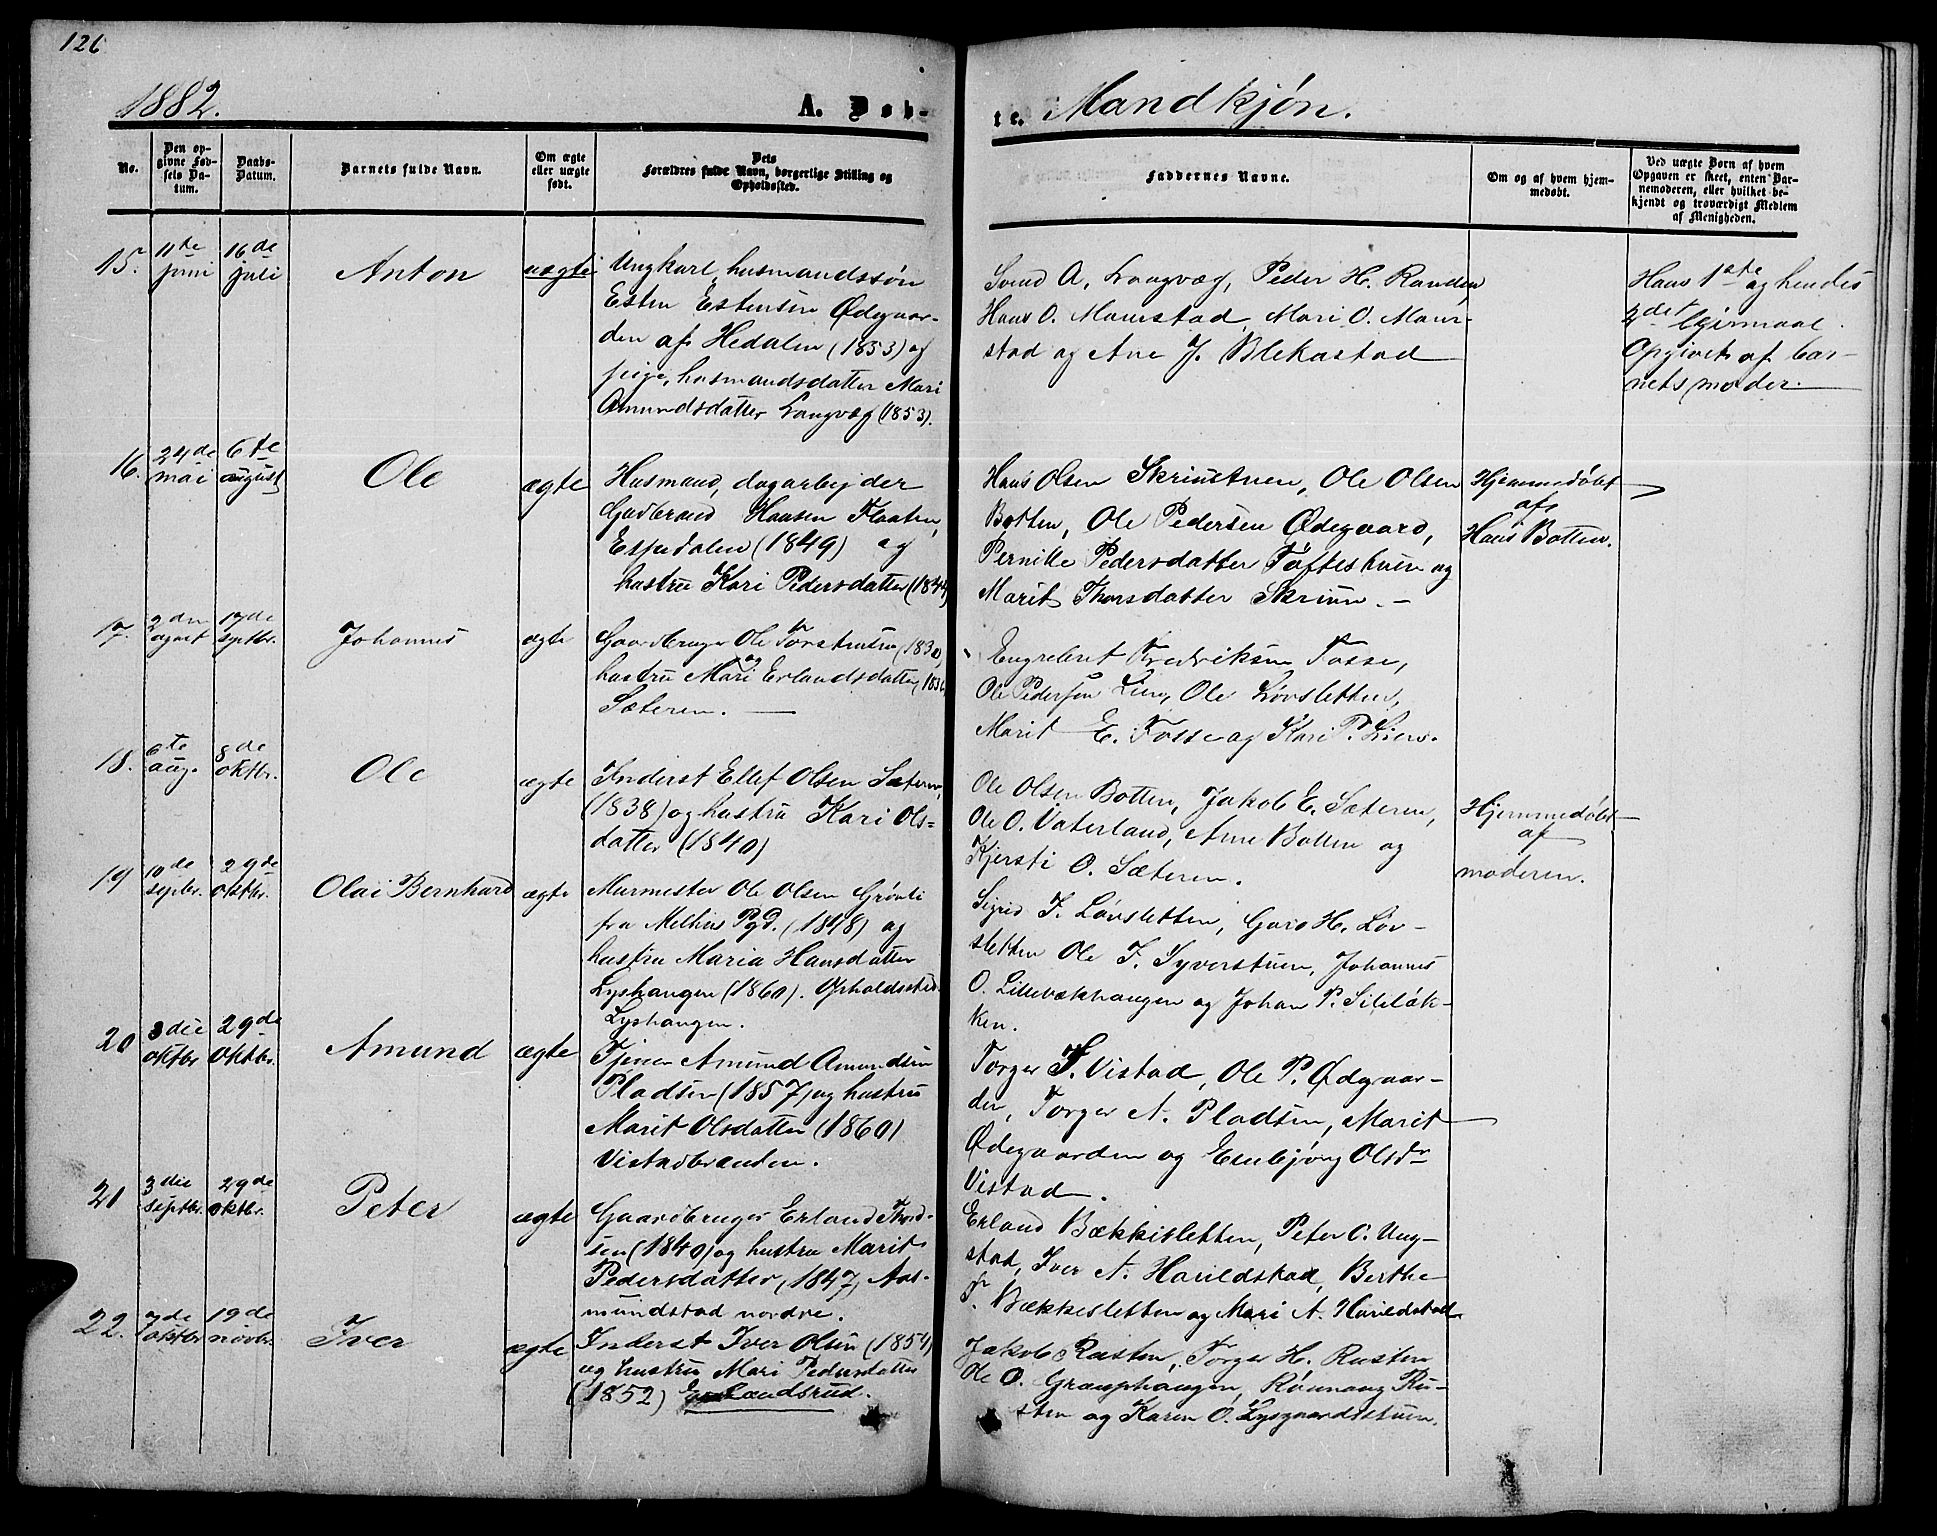 126
1882.
A. Døb-
te. Mandkjøn.
No.
Den op-
givne Fød-
sels Da-
tum.
Daabs-
Datum.
Barnets fulde Navn.
Om ægte
eller uægte
født.
Dets
Forældres fulde Navn, borgerlige Stilling og
Opholdssted.
Faddernes Navne.
Om og af hvem hjem-
medøbt.
Ved uægte Børn af hvem
Opgaven er skeet, enten Bar-
nemoderen, eller hvilket be-
kjendt og troværdigt Medlem
af Menigheden.
15. 11te juni 16de juli Anton uægte
Ungkarl, husmandssøn
Esten Estensen Ødegaar-
den af Hedalen (1853) og
pige, husmandsdatter Mari
Amundsdatter Langvæg (1853).
Svend A. Langvæg, Peder H. Randen,
Hans O. Maurstad, Mari O. Maur-
stad og Ane J. Blekastad
Hans 1ste og hendes
2det leiermaal.
Opgivet af bar-
nets moder.
16. 24de mai 6te august Ole ægte
Husmand, dagarbejder
Gudbrand Hansen Flaaten,
Espedalen (1849) og
hustru Kari Pedersdatter (1844)
Hans Olsen Skriustuen, Ole Olsen
Botten, Ole Pedersen Ødegaard,
Pernille Pedersdatter Tofteshuin og
Marit Thorsdatter Skriun. -
Hjemmedøbt
af
Hans Botten.
17. 2den august 17de septbr. Johannes ægte
Gaardbruger Ole Torstensen (1830)
og
hustru Mari Erlandsdatter,
Sæteren.
Engebret Fredriksen Fosse,
Ole Pedersen Lien, Ole Løvsletten,
Marit E. Fosse og Kari P. Lien.
18. 6te aug. 8de oktbr. Ole ægte
Inderst Ellef Olsen Sæteren,
(1838) og hustru Kari Ols-
datter (1840)
Ole Olsen Botten, Jakob E. Sæteren,
Ole O. Vaterland, Anne Botten og
Kjersti O. Sæteren.
Hjemmedøbt
af
moderen.
19 10de septbr. 29de oktbr. Olai Bernhard ægte
Murmester Ole Olsen Grønli
fra Melhus Pgd. (1848) og
hustru Maria Hansdatter
Lyshaugen (1860). Opholdssted
Lyshaugen.
Sigrid F. Løvsletten, Guro H. Løv-
sletten Ole F. Syverstuen, Johannes
O. Lillebækhaugen og Johan P. Sileløk-
ken.
20 3die oktbr 29de oktbr. Amund ægte
Tjener Amund Amundsen
Pladsen (1857) og hustru
Marit Olsdatter (1860)
Vistadbraaten.
Torger S. Vistad, Ole P. Ødegaar-
den, Torger A. Pladsen, Marit
Ødegaarden og Embjørg Olsdr
Vistad.
21 3die septbr. 29de oktbr. Peter ægte
Gaardbruger Erland Thord-
sen (1840) og hustru Marit
Pedersdatter, 1847, Aas-
mundstad nordre.
Erland Bækkesletten, Peter O. Ung-
stad, Iver A. Harildstad, Berthe
P. Bækkesletten og Mari A. Harildstad
22. 7de oktbr 19de novbr. Iver ægte
Inderst Iver Olsen (1854)
og hustru Mari Pedersdatter
(1852) Landsrud.
Jakob Rusten, Torger H. Rusten
Ole O. Grauphaugen, Rønnaug Ru-
sten og Karen O. Lysgaardsstuen.